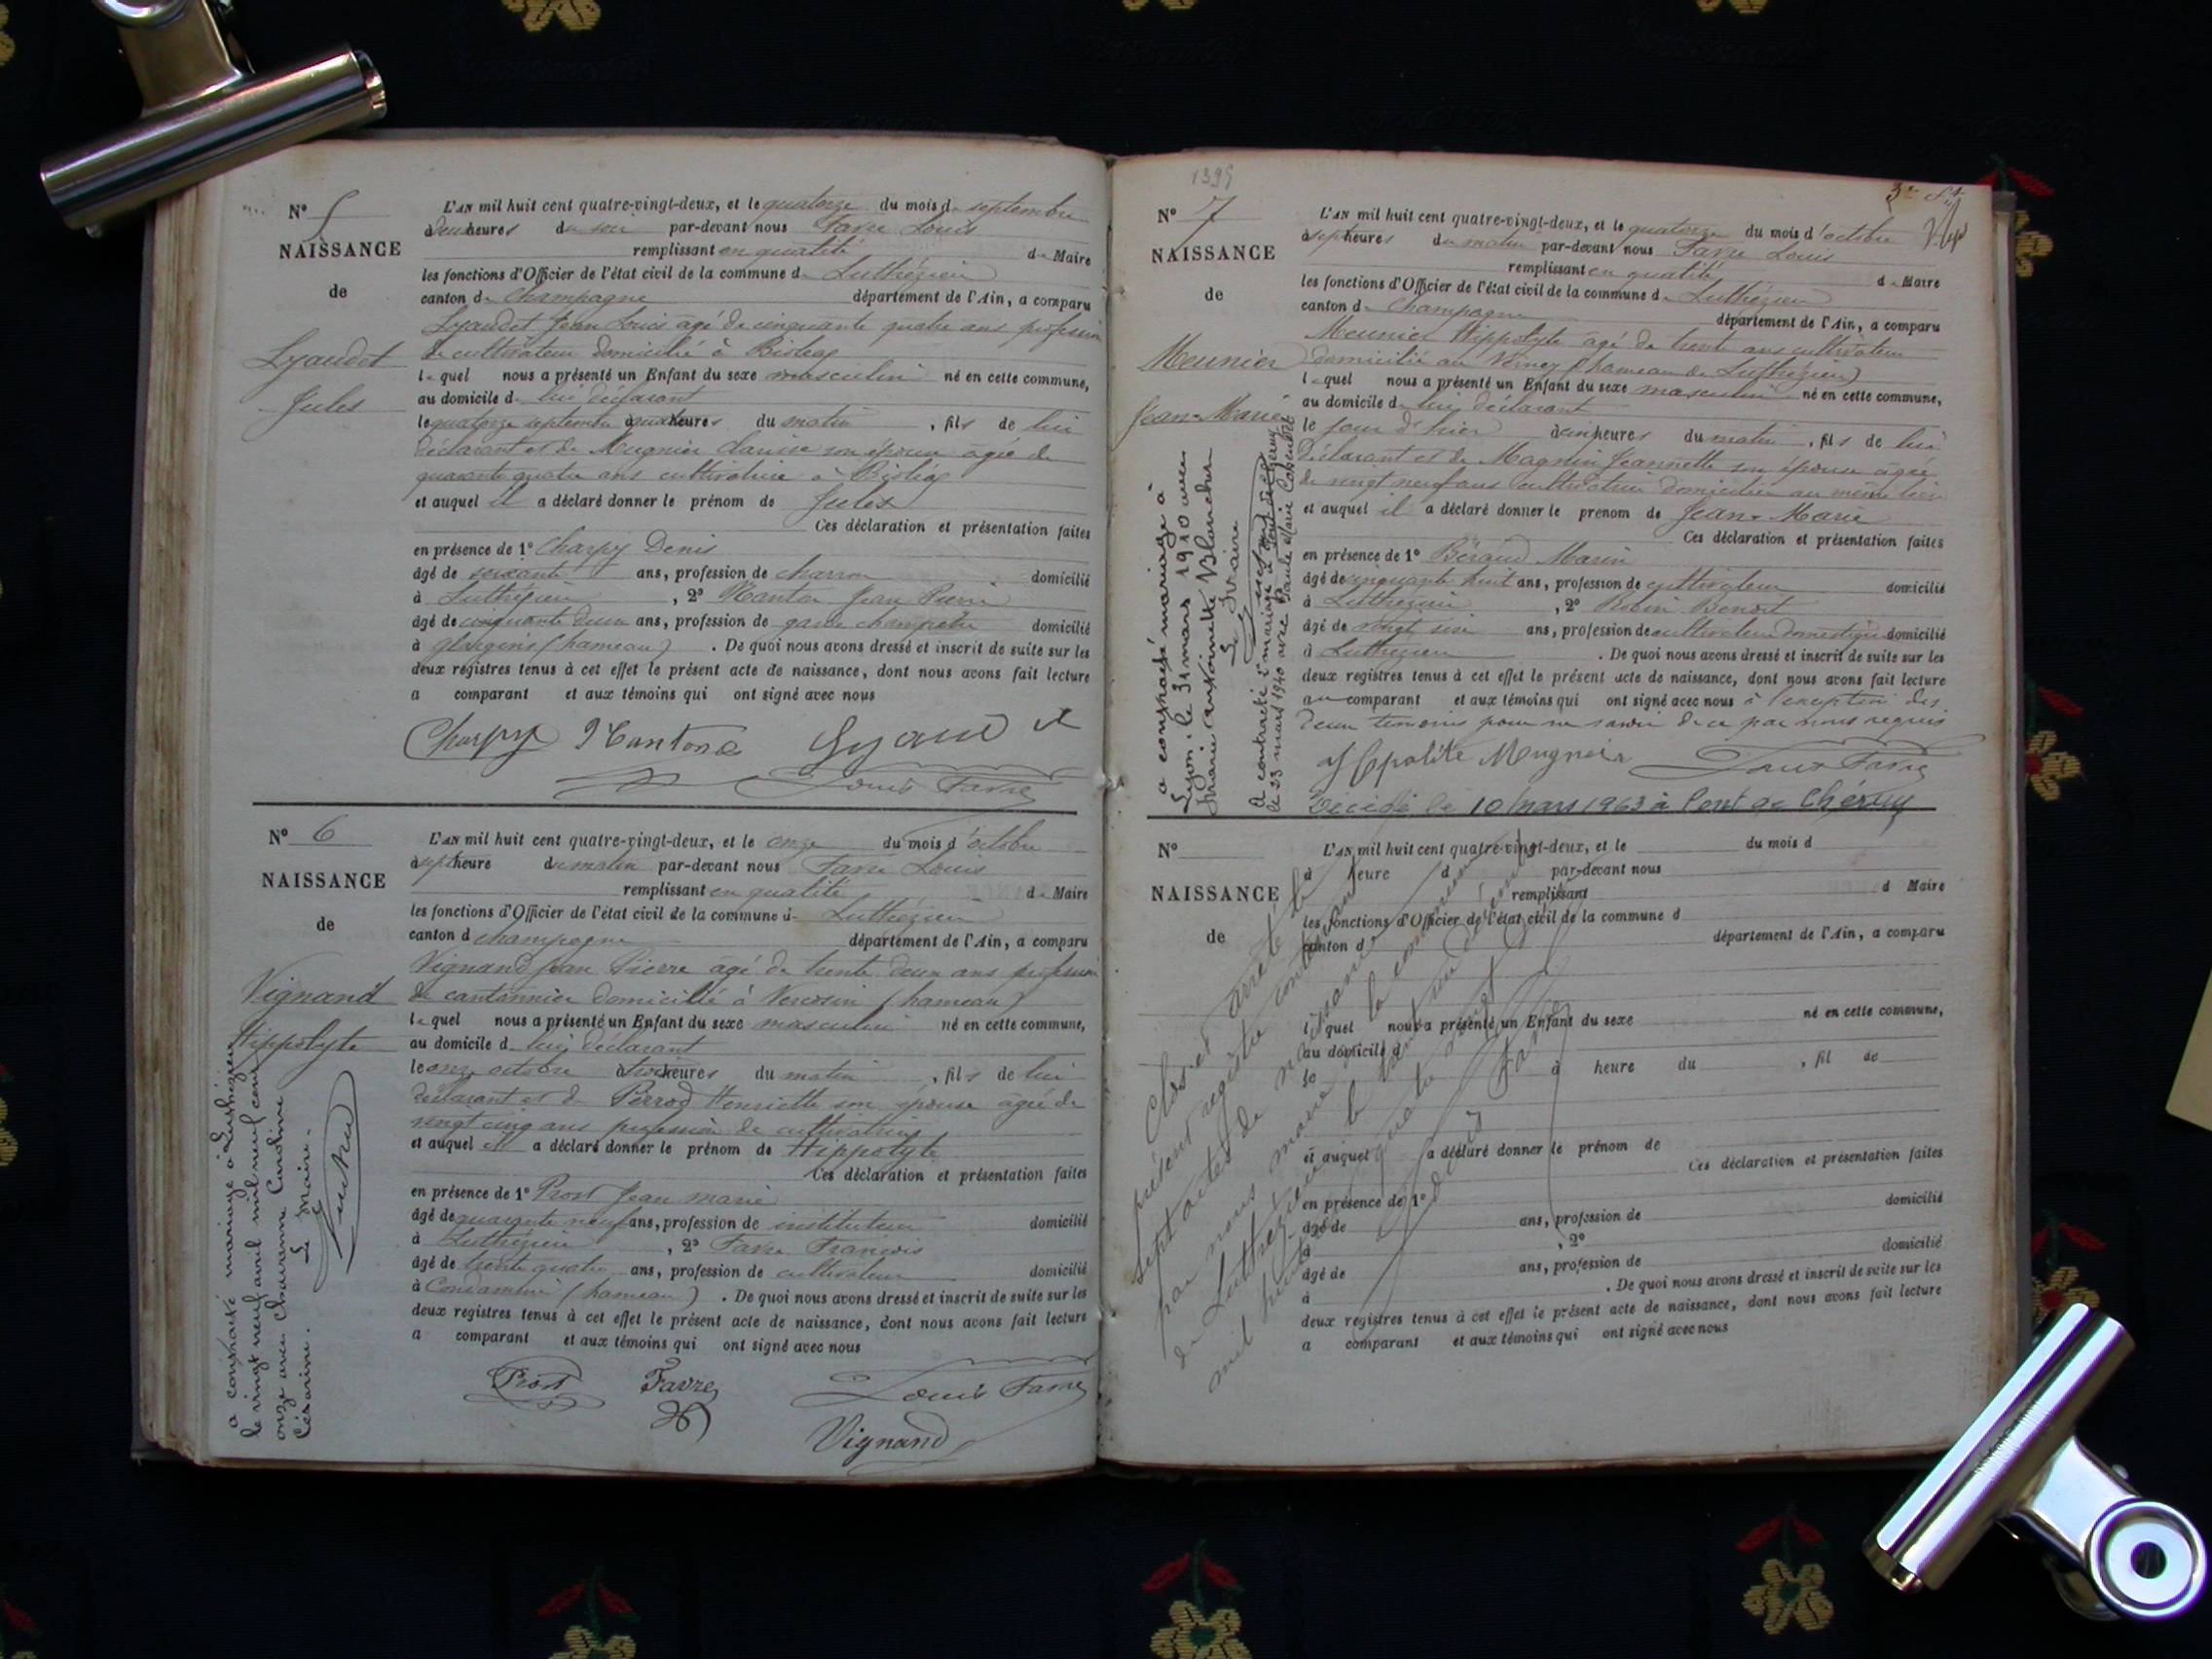 N° 5
NAISSANCE
de
Lyaudet
Jules
L'AN mil huit cent quatre-vingt-deux, et le quatorze du mois de septembre
à deux heures du soir par-devant nous Favre Louis
remplissant en qualité de Maire
les fonctions d'Officier de l'état civil de la commune de Luthézieu
canton de Champagne département de l'Ain, a comparu
Lyaudet Jean Louis âgé de cinquante quatre ans profession
de cultivateur domicilié à
lequel nous a présenté un Enfant du sexe masculin né en cette commune,
au domicile de lui déclarant
le quatorze septembre à quatre heures du matin, fils de lui
déclarant et de Mugnier Clarisse son épouse âgée de
quarante quatre ans cultivatrice à
et auquel il a déclaré donner le prénom de Jules
Ces déclaration et présentation faites
en présence de 1° Charpy Denis
âgé de soixante ans, profession de charron domicilié
à Luthézieu, 2° Jean Pierre
âgé de cinquante deux ans, profession de garde champêtre domicilié
à (hameau). De quoi nous avons dressé et inscrit de suite sur les
deux registres tenus à cet effet le présent acte de naissance, dont nous avons fait lecture
a comparant et aux témoins qui ont signé avec nous
Charpy Lyaudet
Louis Favre
N° 6
NAISSANCE
de
Vignand
Hippolyte
a contracté mariage à Luthézieu
le vingt neuf avril mil neuf cent
onze avec Caroline
Césarine. Le Maire.
L'AN mil huit cent quatre-vingt-deux, et le onze du mois d'octobre
à sept heure du matin par-devant nous Favre Louis
remplissant en qualité de Maire
les fonctions d'Officier de l'état civil de la commune de Luthézieu
canton d champagne département de l'Ain, a comparu
Vignand Jean Pierre âgé de trente deux ans profession
de cantonnier domicilié à Vercosin (hameau)
lequel nous a présenté un Enfant du sexe masculin né en cette commune,
au domicile d lui déclarant
le onze octobre à trois heures du matin, fils de lui
déclarant et de Perrod Henriette son épouse âgée de
vingt cinq ans profession de cultivatrice
et auquel il a déclaré donner le prénom de Hippolyte
Ces déclaration et présentation faites
en présence de 1° Prost Jean marie
âgé de quarante neuf ans, profession de instituteur domicilié
à Luthézieu, 2° Favre François
âgé de trente quatre ans, profession de cultivateur domicilié
à Condamine (hameau). De quoi nous avons dressé et inscrit de suite sur les
deux registres tenus à cet effet le présent acte de naissance, dont nous avons fait lecture
a comparant et aux témoins qui ont signé avec nous
Prost Favre Louis Favre
Vignand
1399
N° 7
NAISSANCE
de
Meunier
Jean-Marie
a contracté mariage à
Lyon, le 31 mars 1910 avec
Marie Antoinette Blanchin
Le Maire
A contracté 2e mariage à Pont de Chéruy
le 23 mars 1940 avec Paule Marie
L'AN mil huit cent quatre-vingt-deux, et le quatorze du mois d'octobre
à sept heures du matin par-devant nous Favre Louis
remplissant en qualité de Maire
les fonctions d'Officier de l'état civil de la commune de Luthézieu
canton de Champagne département de l'Ain, a comparu
Meunier Hippolyte âgé de trente ans cultivateur
domicilié au (hameau de Luthézieu)
lequel nous a présenté un Enfant du sexe masculin né en cette commune,
au domicile de lui déclarant
le jour d'hier à cinq heures du matin, fils de lui
déclarant et de Magnin Jeannette son épouse âgée
de vingt neuf ans cultivateur domicilier au même lieu
et auquel il a déclaré donner le prenom de Jean-Marie
Ces déclaration et présentation faites
en présence de 1° Béraud Marin
âgé de cinquante huit ans, profession de cultivateur domicilié
à Luthézieu, 2° Robin Benoit
âgé de vingt six ans, profession de cultivateur domestique domicilié
à Luthézieu. De quoi nous avons dressé et inscrit de suite sur les
deux registres tenus à cet effet le présent acte de naissance, dont nous avons fait lecture
au comparant et aux témoins qui ont signé avec nous à l'exception des
deux témoins pour ne savoir de ce par nous requis
Hypolite Mugnier Louis Favre
Décédé le 10 Mars 1963 à Pont de Chéruy
N°
NAISSANCE
de
L'AN mil huit cent quatre-vingt-deux, et le du mois d
à heure d par-devant nous
remplissant d Maire
les fonctions d'Officier de l'état civil de la commune d
canton d département de l'Ain, a comparu
l quel nous a présenté un Enfant du sexe né en cette commune,
au domicile d
le à heure du, fil de
et auquel a déclaré donner le prénom de
Ces déclaration et présentation faites
en présence de 1° domicilié
âgé de ans, profession de
à, 2° domicilié
âgé de ans, profession de
à. De quoi nous avons dressé et inscrit de suite sur les
deux registres tenus à cet effet le présent acte de naissance, dont nous avons fait lecture
a comparant et aux témoins qui ont signé avec nous
Clos et arrêté le
présent registre contenant
sept actes de naissance
par nous maire de la commune
de Luthézieu le
mil huit cent quatre vingt
Louis Favre